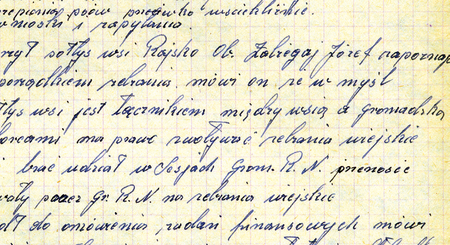 psów przeciwko wściekliźnie.
wnioski i zapytania
sołtys wsi Rajsko Ob. Józef zapoznaje
porządkiem zebrania mówi on że w myśl
wsi jest łącznikiem między wsią a gromadzką
ma prawo zwoływać zebrania wiejskie
brać udział w Sesjach Grom. R. N. przenosić
przez Gr. R. N. na zebrania wiejskie
do omówienia zadań finansowych mówi